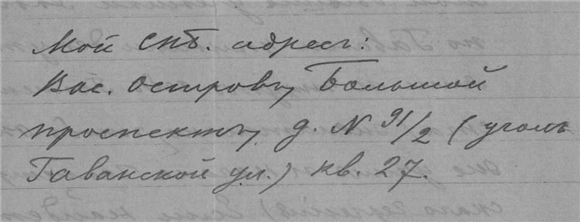 Мой спб. адресъ:
Вас. Островъ, Большой
проспектъ, д. N 91/2 (уголъ
Гаванской ул.) кв. 27.